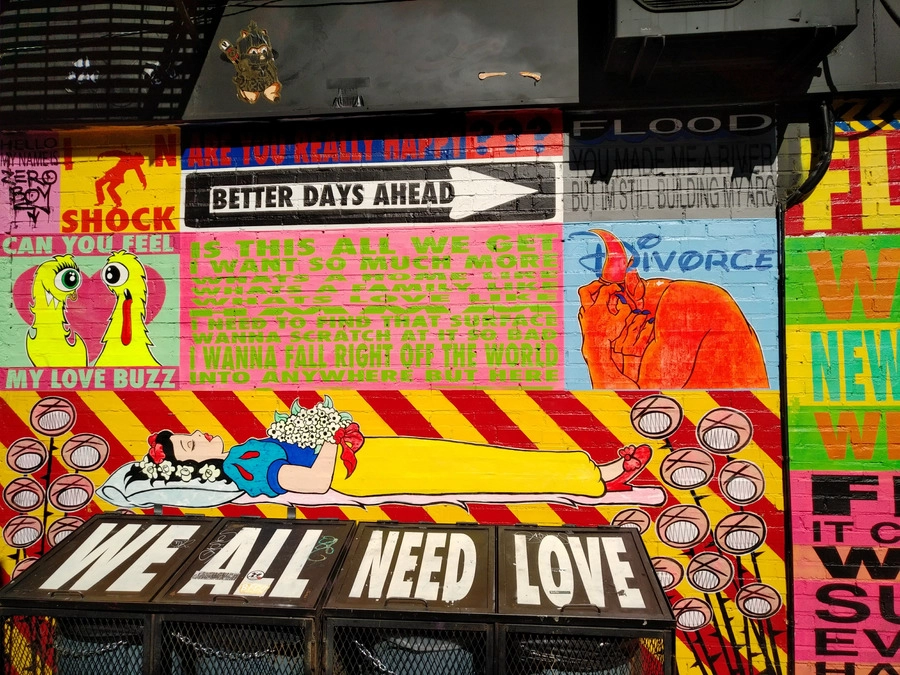 HELLO
MY NAME IS
ZERO
BOY
SHOCK
CAN YOU FEEL
MY LOVE BUZZ
ARE YOU REALLY HAPPY
BETTER DAYS AHEAD
IS THIS ALL WE GET
I WANT SO MUCH MORE
WHATS A HOME LIKE
WHATS A FAMILY LIKE
WHATS LOVE LIKE
I NEED TO FIND THAT SURFACE
WANNA SCRATCH AT IT SO BAD
I WANNA FALL RIGHT OFF THE WORLD
INTO ANYWHERE BUT HERE
FLOOD
YOU MADE ME A RIVER
BUT IM STILL BUILDING MY ARC
DIVORCE
WE ALL NEED LOVE
FL
W
NEW
W
F
IT C
W
SU
EV
HA